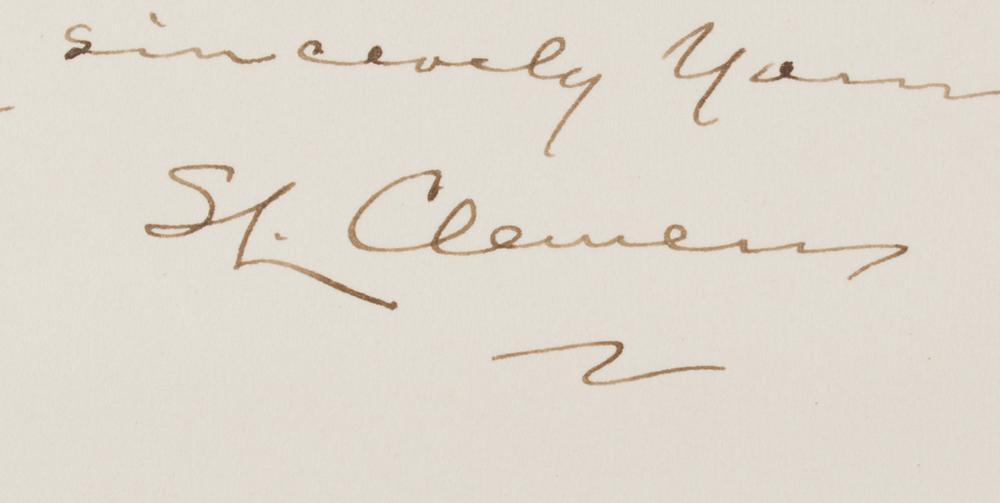 sincerely Yours
SL. Clemens